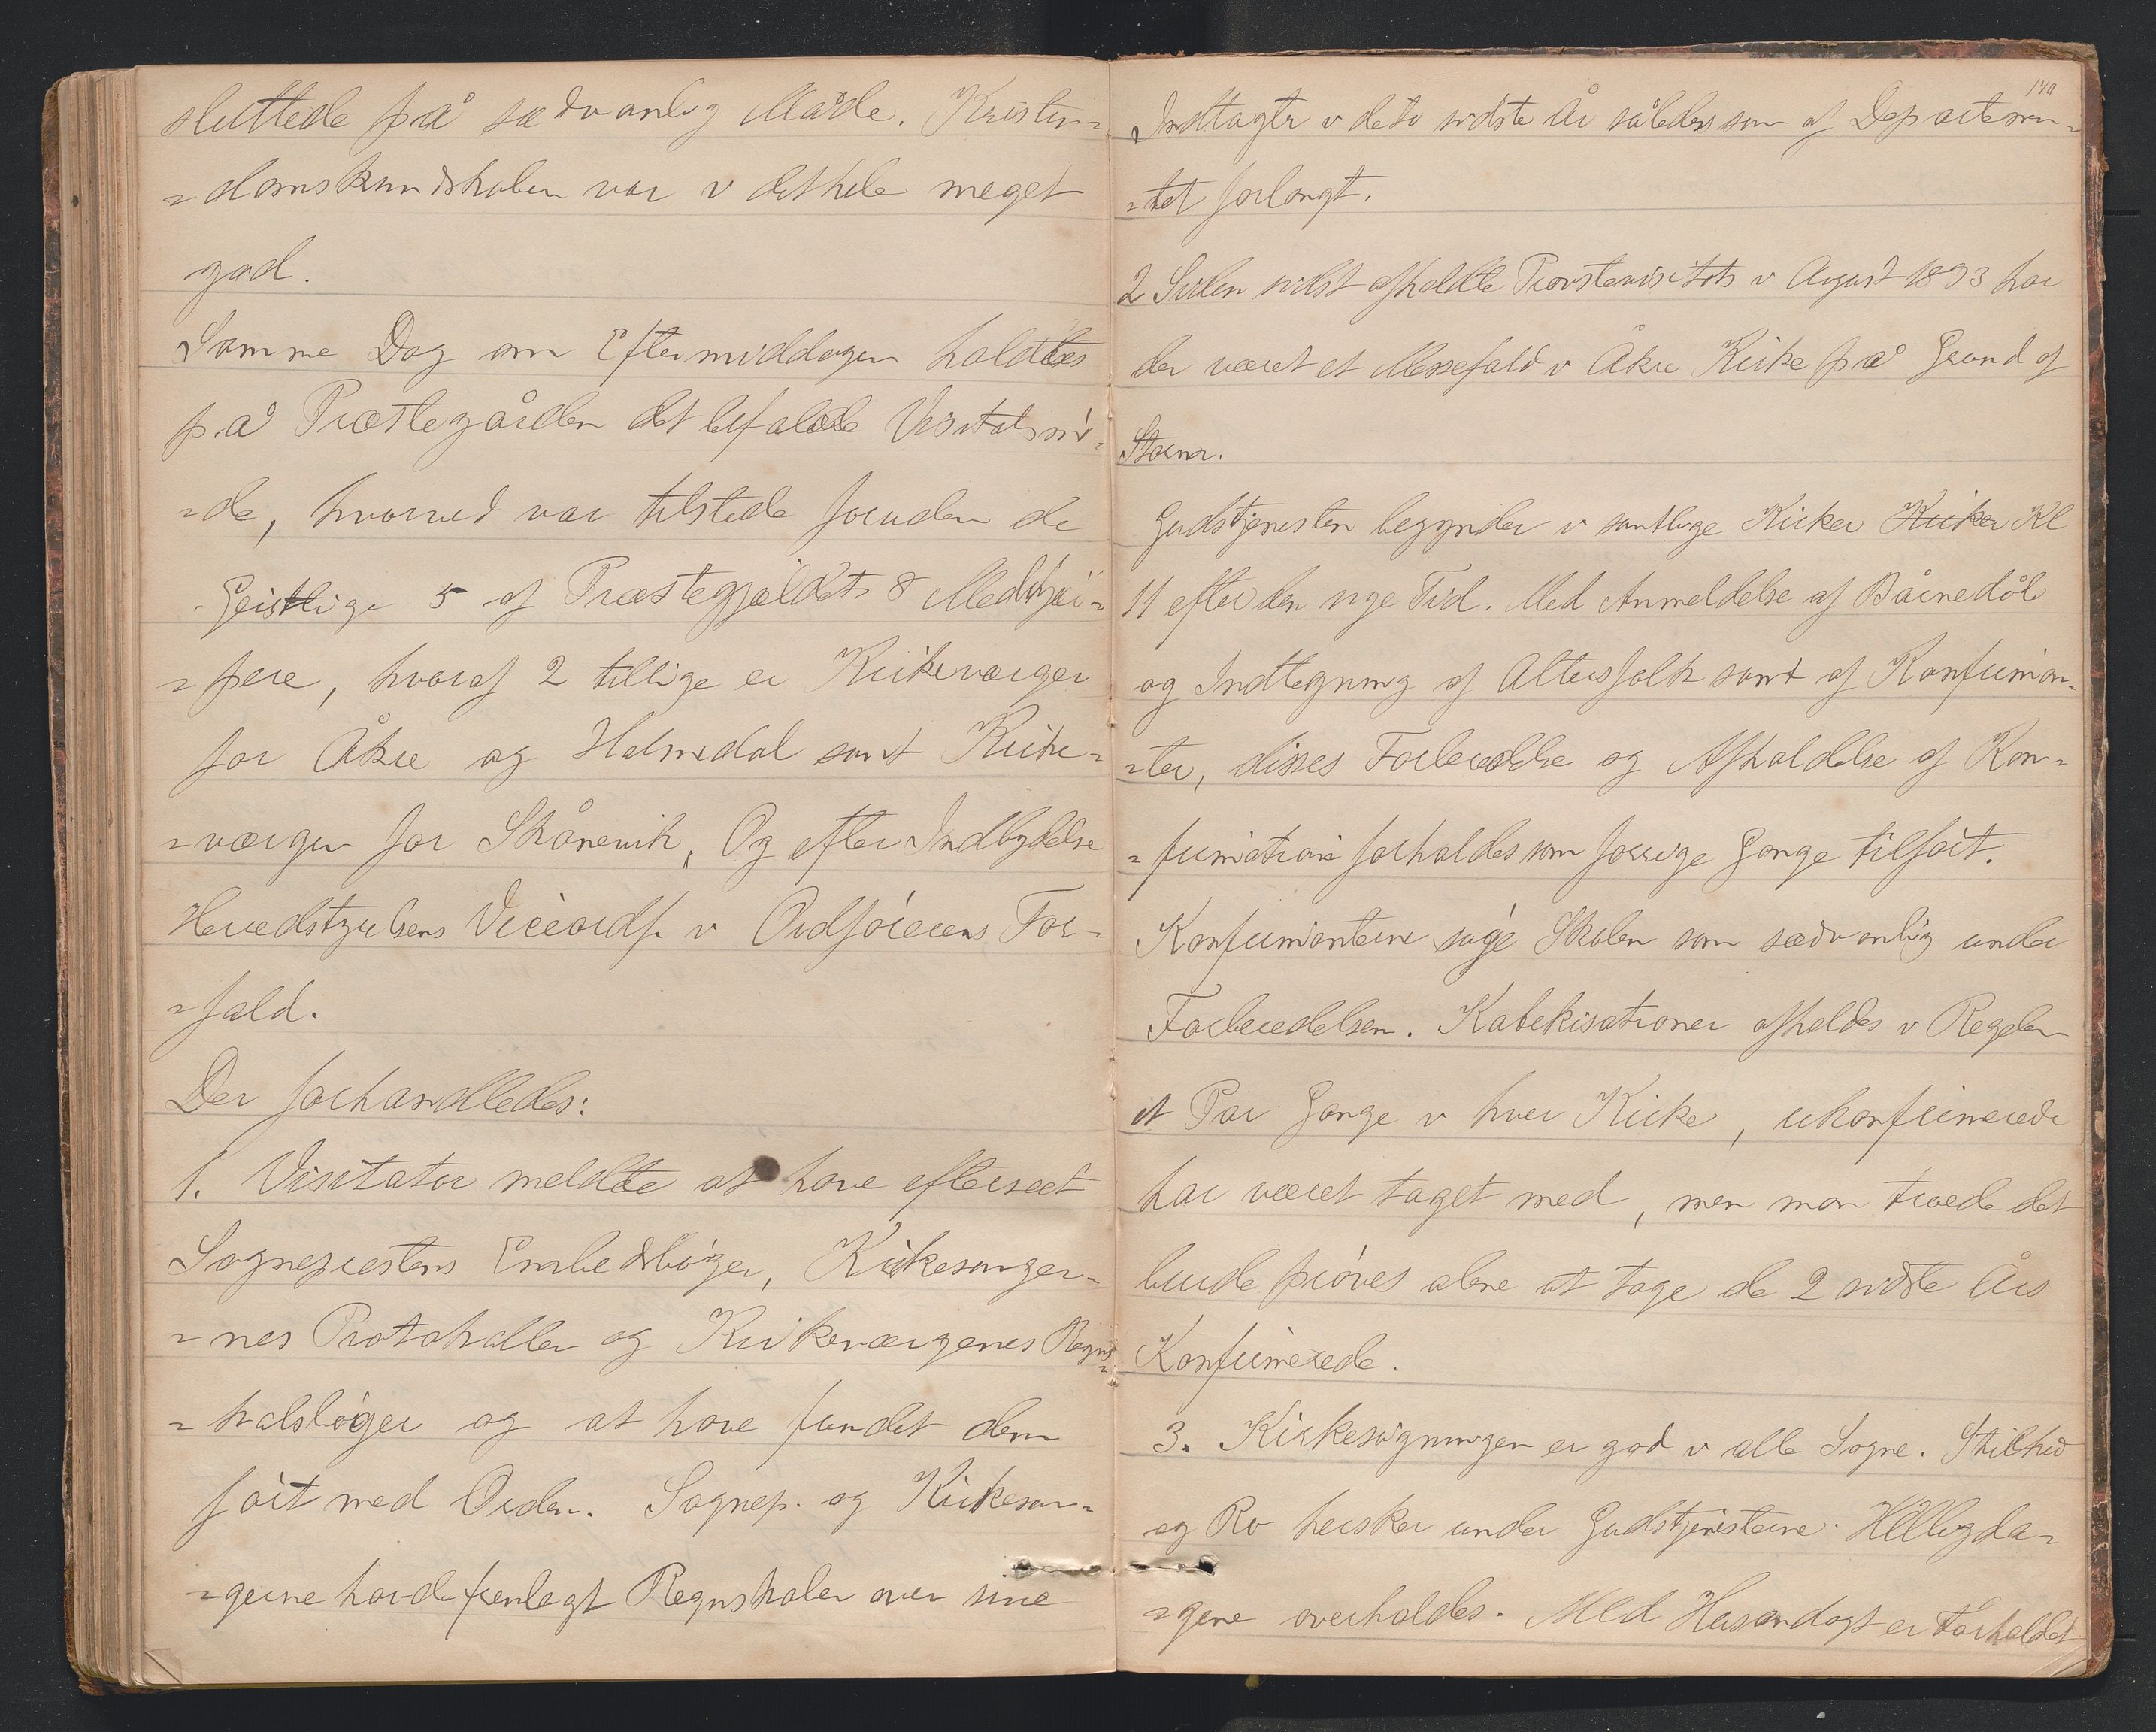 sluttede på sædvanlig Måde. Kristen-
-domskundskaben var i det hele meget
god.
Samme Dag om Eftermiddagen holdtes
på Præstegården det befalede Visitatsmö-
-de, hvorved var tilstede foruden de
Geistlige 5 af Præstegjeldets 8 Medhjæl-
-pere, hvoraf 2 tillige er Kirkeværger
for Åkre og Holmedal samt Kirke-
-værgen for Skånevik, Og efter Indbydelse
Heredstyrelsens Viceordf. i Ordförerens For-
-fald.
Der forhandledes:
1. Visitator meldte at have efterseet
Sogneprestens Embedsböger, Kirkesanger-
-nes Protokoller og Kirkeværgenes Regns-
-kabsböger og at have fundet dem
fört med Orden. Sognep. og Kirkesan-
-gerne havde fremlagt Regnskaber over sine
140
Indtægter i de to sidste År således som af Departemen-
-tet forlangt.
2 Siden sidst afholdte Provstevisitats i August 1893 har
der været et Messefald i Åkre Kirke på Grund af
Storm.
Gudstjenesten begynder i samtlige Kirker Kirker Kl
11 efter den nye Tid. Med Anmeldelse af Bårnedåb
og Indtegning af Altersfolk samt af Konfirman-
-ter, disses Forberedelse og Afholdelse af Kon-
-firmation forholdes som forrige Gange tilfört.
Konfirmanterne söge Skolen som sædvanlig under
Forberedelsen. Katekisationer afholdes i Regelen
et Par Gange i hver Kirke, ukonfirmerede
har været taget med, men man troede det
burde pröves alene at tage de 2 sidste Års
Konfirmerede.
3. Kirkesögningen er god i alle Sogne. Stilhed
og Ro hersker under Gudstjenesterne. Helligda-
-gene overholdes. Med Husandagt er Forholdet